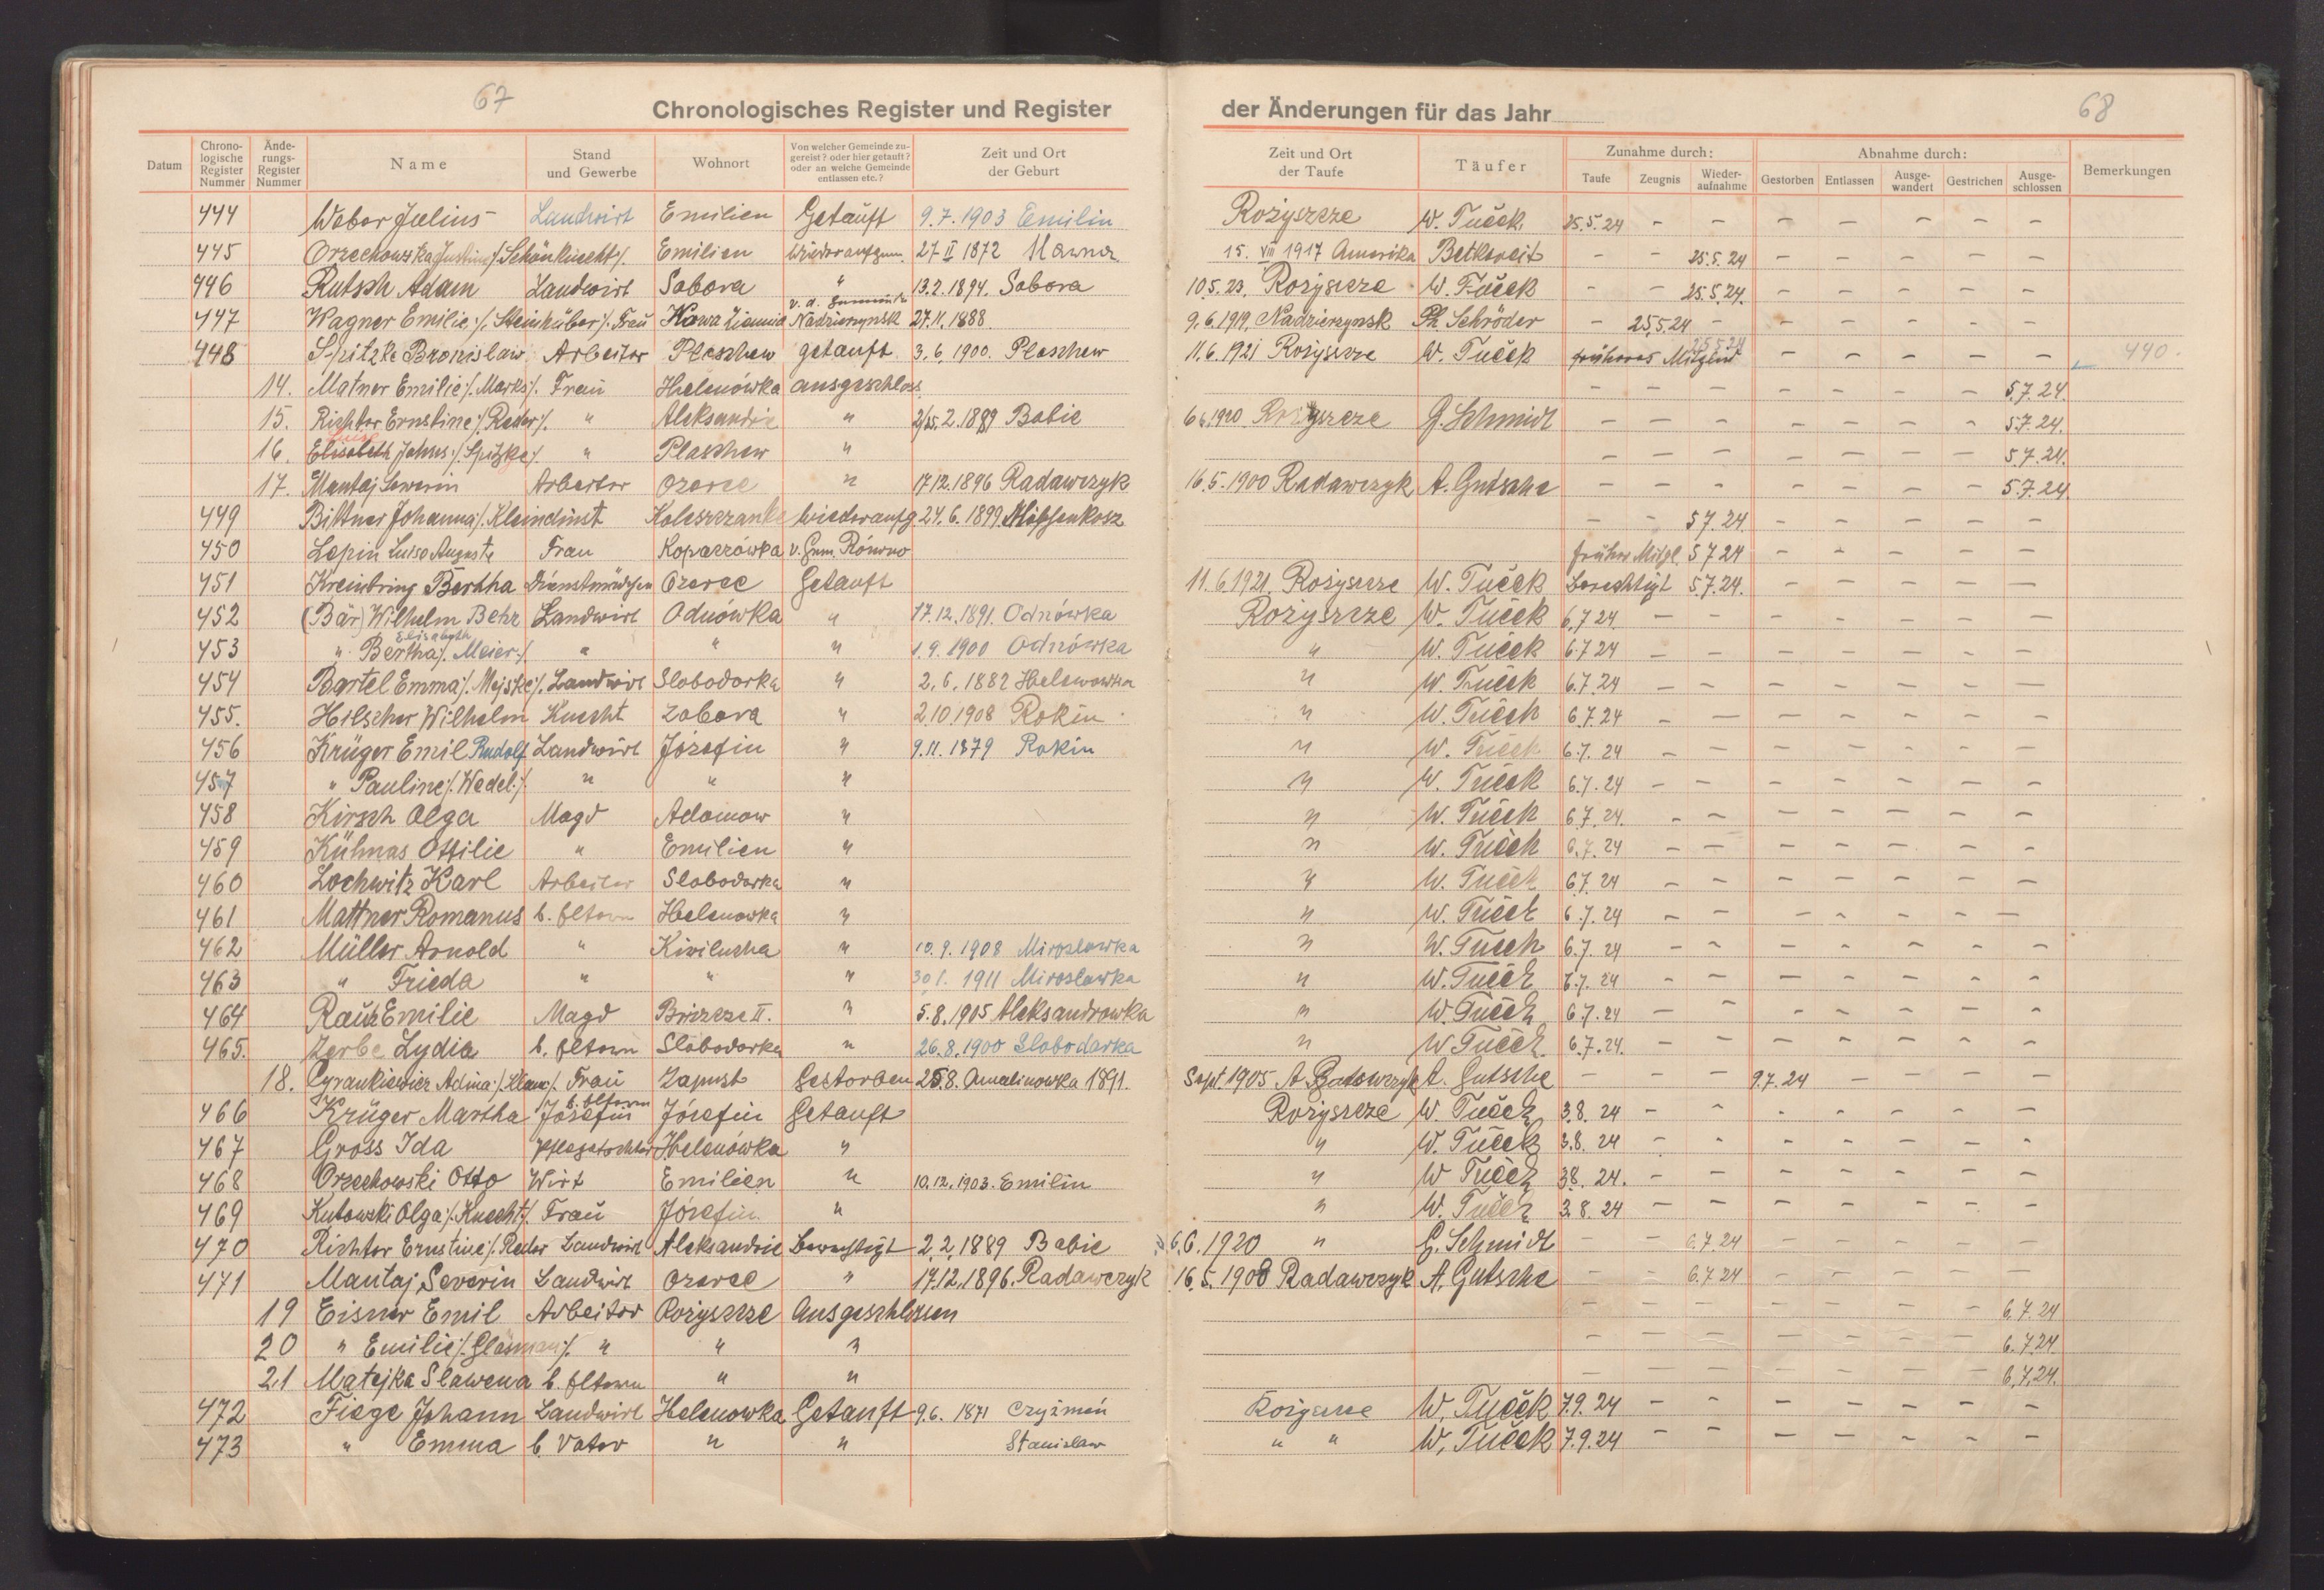 67
Chronologisches Register und Register der Änderungen für das Jahr
68
Datum Chrono-logische Register Nummer Ände-rungs-Register Nummer Name Stand und Gewerbe Wohnort Von welcher Gemeinde zu-gereist? oder hier getauft? oder an welche Gemeinde entlassen etc.? Zeit und Ort der Geburt Zeit und Ort der Taufe Täufer Zunahme durch: Taufe Zeugnis Wieder-aufnahme Abnahme durch: Gestorben Entlassen Ausge-wandert Gestrichen Ausge-schlossen Bemerkungen
444 Weber Julius Landwirt Emilien Getauft 9.7.1903 Emilin Rożyszcze W. Tuček 25.5.24 - - - - - - -
445 Orzechowska Justine /:Schönknecht/. Emilien Wiederaufgen. 27 II 1872 15. VIII 1917 Amerika Betkereit - - 25.5.24 - - - - -
446 Rutsch Adam Landwirt Sabora " 13.2.1894. Sabora 10.5.23. Rożyszcze W. Tuček - - 25.5.24. - - - - -
447 Wagner Emilie /:Steinhüber/. Frau Kowa Ziemia v. d. Gemeinde Nadzierzynsk 27.11.1888. 9.6.1919. Nadzierzynsk Ph. Schröder - 25.5.24 - - - - - -
448 Spitzke Bronislaw Arbeiter Pleschew getauft 3.6.1900. Pleschew 11.6.1921 Rożyszcze W. Tuček früheres Mitglied 25.5.24 - - - - - 440.
14. Matner Emilie /:Marks/. Frau Helenówka ausgeschloss. - - - - - - - 5.7.24.
15. Richter Ernstine /:Reder/. " Aleksandrie " 2/15.2.1889 Babie 6.6.1920 Rożyszcze G. Schmidt - - - - - - - 5.7.24.
16. Elisabeth Johns /:Spitzke/. " Plaschew " - - - - - - - 5.7.24.
17. Mantaj Sewerin Arbeiter Ozerce " 17.12.1896 Radawczyk 16.5.1900 Radawczyk A. Gutsche - - - - - - - 5.7.24
449 Bittner Johanna /:Kleindinst Koleszczanke Wiederaufg. 24.6.1899 - - 5.7.24. - - - - -
450 Lepin Luise Auguste Frau Kopaczówka v. Gem. Równo früher Mitgl. 5.7.24 - - - - -
451 Kreinbring Bertha Dienstmädchen Ozerce Getauft 11.6.1921. Rożyszcze W. Tuček Berechtigt 5.7.24. - - - - -
452 (Bär) Wilhelm Behr Landwirt Odnówka " 17.12.1891. Odnówka Rożyszcze W. Tuček 6.7.24. - - - - - - -
453 " Bertha Elisabeth /:Meier:/. " " " 1.9.1900 Odnówka " W. Tuček 6.7.24 - - - - - - -
454 Bartel Emma /:Mejske/. Landwirt Slobodarka " 2.6.1882 Helenowka " W. Tuček 6.7.24 - - - - - - -
455. Hilscher Wilhelm Knecht Zabora " 2.10.1908 Rokin " W. Tuček 6.7.24 - - - - - - -
456 Krüger Emil Rudolf Landwirt Józefin " 9.11.1879 Rokin " W. Tuček 6.7.24 - - - - - - -
457 " Pauline /:Wedel:/. " " " " W. Tuček 6.7.24 - - - - - - -
458 Kirsch Olga Magd Adamow " " W. Tuček 6.7.24. - - - - - - -
459 Kühnas Ottilie " Emilien " " W. Tuček 6.7.24 - - - - - - -
460 Lochwitz Karl Arbeiter Slobodarka " " W. Tuček 6.7.24 - - - - - - -
461 Mattner Romanus b. Eltern Helenowka " " W. Tuček 6.7.24 - - - - - - -
462 Müller Arnold " Kiwilucha " 10.9.1908 Miroslawka " W. Tuček 6.7.24 - - - - - - -
463 " Frieda " " " 30.1.1911 Miroslawka " W. Tuček 6.7.24 - - - - - - -
464 Rautz Emilie Magd Briszcze II. " 5.8.1905 Aleksandrowka " W. Tuček 6.7.24 - - - - - - -
465. Zerbe Lydia b. Eltern Slobodarka " 26.8.1900 Slobodarka " W. Tuček 6.7.24. - - - - - - -
18. Cyrankiewicz Adina /:Klann/. Frau Zapust Gestorben 25.8. Amelinowka 1891. Sept. 1905 A. Radawczyk A. Gutsche - - - 9.7.24 - - - -
466 Krüger Martha b. Eltern Józefin Józefin Getauft Rożyszcze W. Tuček 3.8.24 - - - - - - -
467 Gross Ida Pflegetochter Helenówka " " W. Tuček 3.8.24 - - - - - - -
468 Orzechowski Otto Wirt Emilien " 10.12.1903. Emilin " W. Tuček 3.8.24. - - - - - - -
469 Kutowski Olga /:Knecht:/. Frau Józefin " " W. Tuček 3.8.24 - - - - - - -
470 Richter Ernstine /:Reder Landwirt Aleksandrie Berechtigt 2.2.1889 Babie 6.6.1920 " G. Schmidt - - 6.7.24 - - - - -
471 Mantaj Severin Landwirt Ozerce " 17.12.1896. Radawczyk 16.5.1908 Radawczyk A. Gutsche - - 6.7.24 - - - - -
19 Eisner Emil Arbeiter Rożyszcze Ausgeschlossen - - - - - - - 6.7.24
20 " Emilie /:Gläsman/. " " " - - - - - - - 6.7.24.
21 Matejka Slawena b. Eltern " " - - - - - - - 6.7.24.
472 Fiege Johann Landwirt Helenowka Getauft 9.6.1871 Czyżmeń Rożyszcze W. Tuček 7.9.24 - - - - - - -
473 " Emma b. Vater " " Stanislaw " " W. Tuček 7.9.24 - - - - - - -